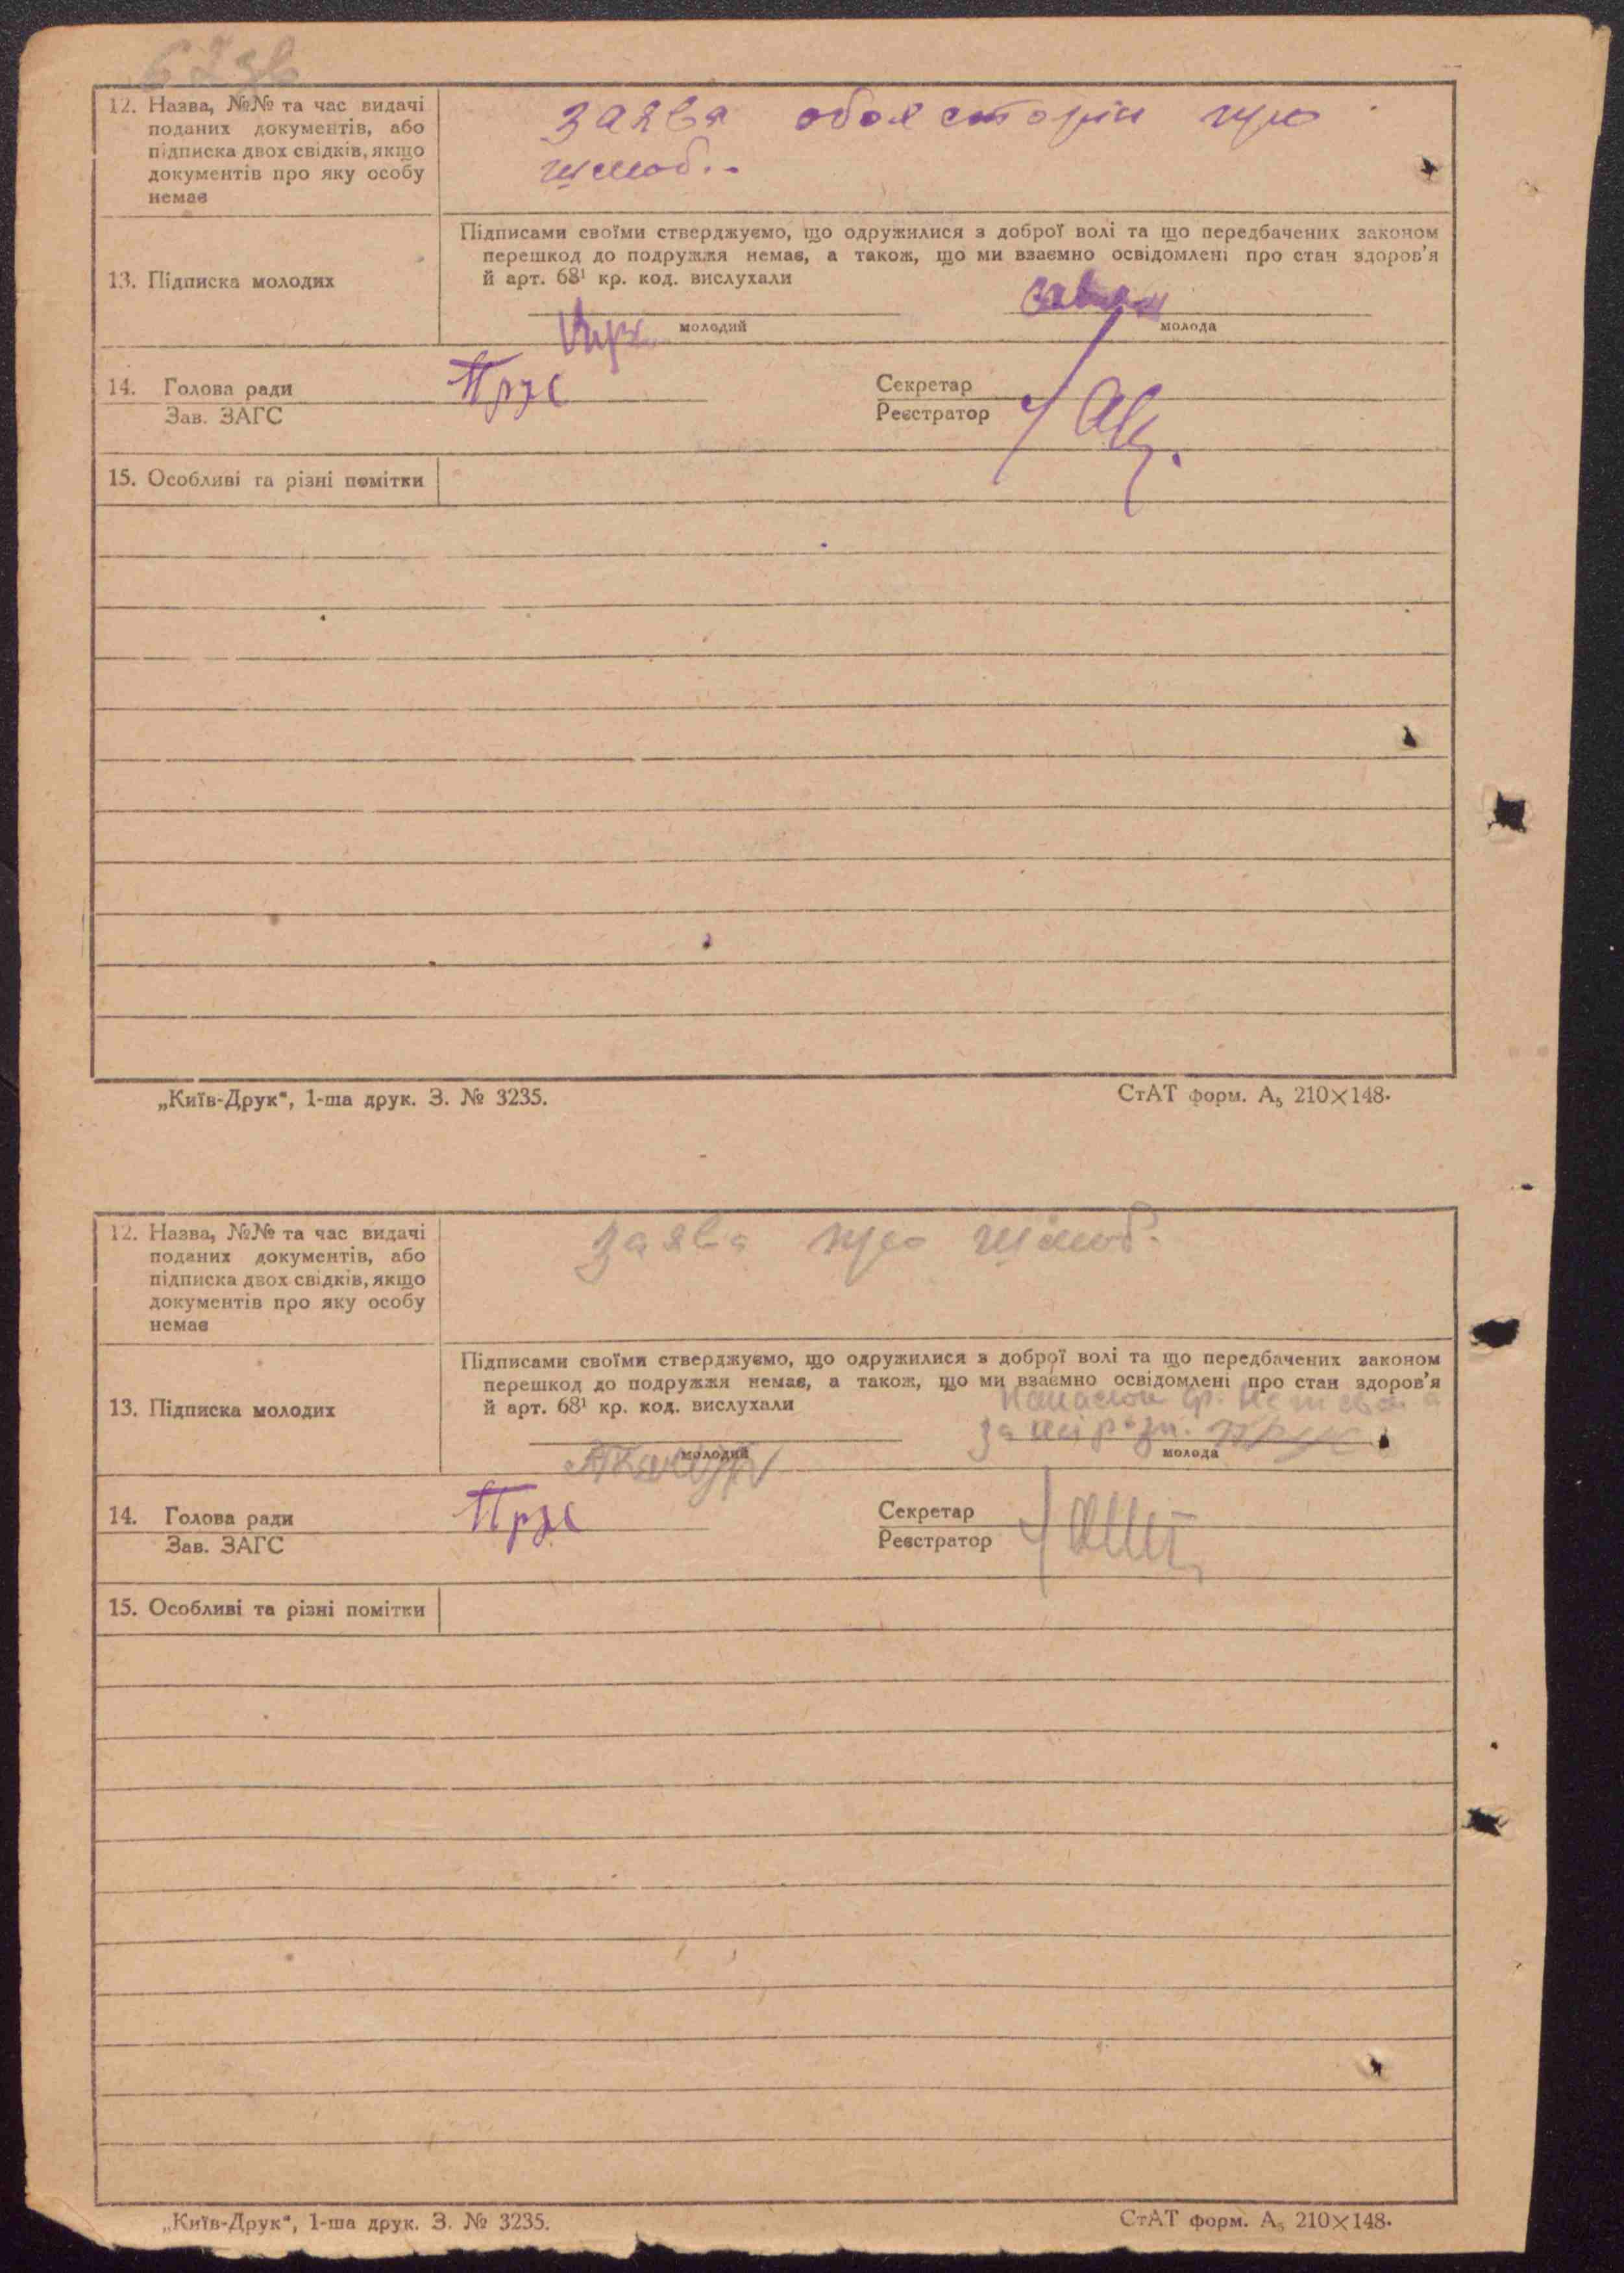 67 зв
12. Назва, №№ та час видачі
поданих документів, або
підписка двох свідків, якщо
документів про яку особу
немає
заява обох сторін про
шлюб..
13. Підписка молодих
Підписами своїми стверджуємо, що одружилися з доброї волі та що передбачених законом
перешкод до подружжя немає, а також, що ми взаємно освідомлені про стан здоров'я
й арт. 68¹ кр. код. вислухали
молодий
молода
14. Голова ради
Зав. ЗАГС
Секретар
Реєстратор
15. Особливі та різні помітки
„Київ-Друк", 1-ша друк. З. № 3235.
СтАТ форм. А₅ 210×148.
12. Назва, №№ та час видачі
поданих документів, або
підписка двох свідків, якщо
документів про яку особу
немає
заява про шлюб.
13. Підписка молодих
Підписами своїми стверджуємо, що одружилися з доброї волі та що передбачених законом
перешкод до подружжя немає, а також, що ми взаємно освідомлені про стан здоров'я
й арт. 68¹ кр. код. вислухали
молодий
молода
14. Голова ради
Зав. ЗАГС
Секретар
Реєстратор
15. Особливі та різні помітки
„Київ-Друк", 1-ша друк. З. № 3235.
СтАТ форм. А₅ 210×148.